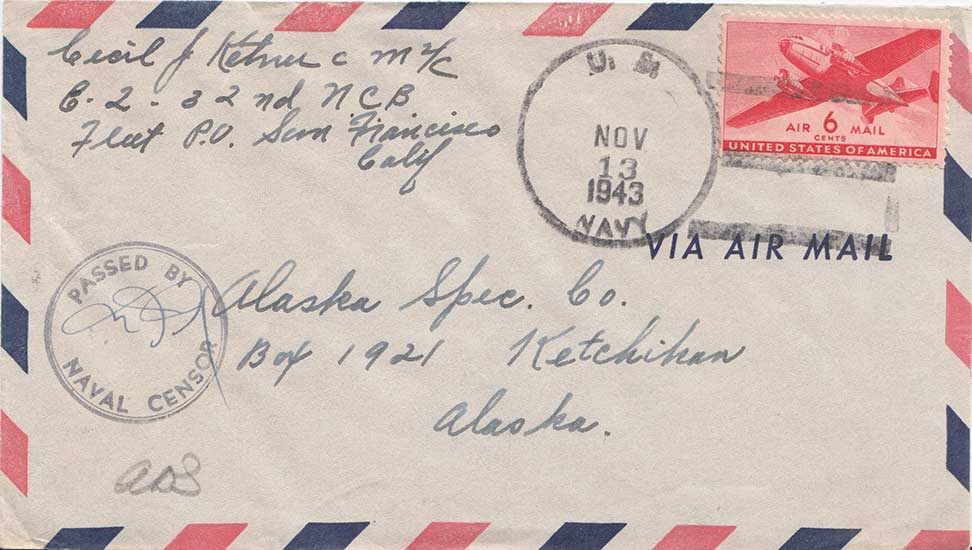 Cecil J Ketner C M 2/C
C-2-32nd NCB
Fleet P.O. San Francisco
Calif
U. S.
NOV
13
1943
NAVY
AIR 6 MAIL
CENTS
UNITED STATES OF AMERICA
VIA AIR MAIL
PASSED BY
NAVAL CENSOR
Alaska Spec. Co.
Box 1921 Ketchikan
Alaska.
ADS